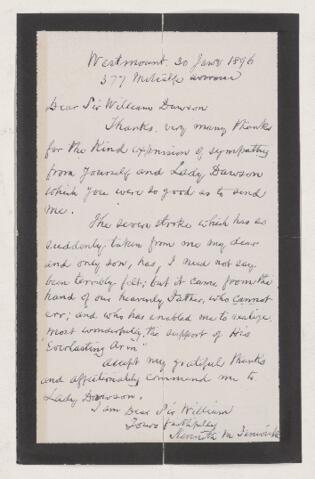 Westmount 30 Jany 1896
377 Metcalfe avenue
Dear Sir William Dawson
Thanks, very many thanks
for the kind expression of sympathy
from yourself and Lady Dawson
which you were so good as to send
me.
The severe stroke which has so
suddenly taken from me my dear
and only son, has, I need not say
been terribly felt; but it came from the
hand of our heavenly Father, who cannot
err; and who has enabled me to realize,
most wonderfully, the support of His
"Everlasting Arm"
Accept my grateful thanks
and affectionately commend me to
Lady Dawson.
I am Dear Sir William
Yours faithfully
Kenneth M. Fenwick